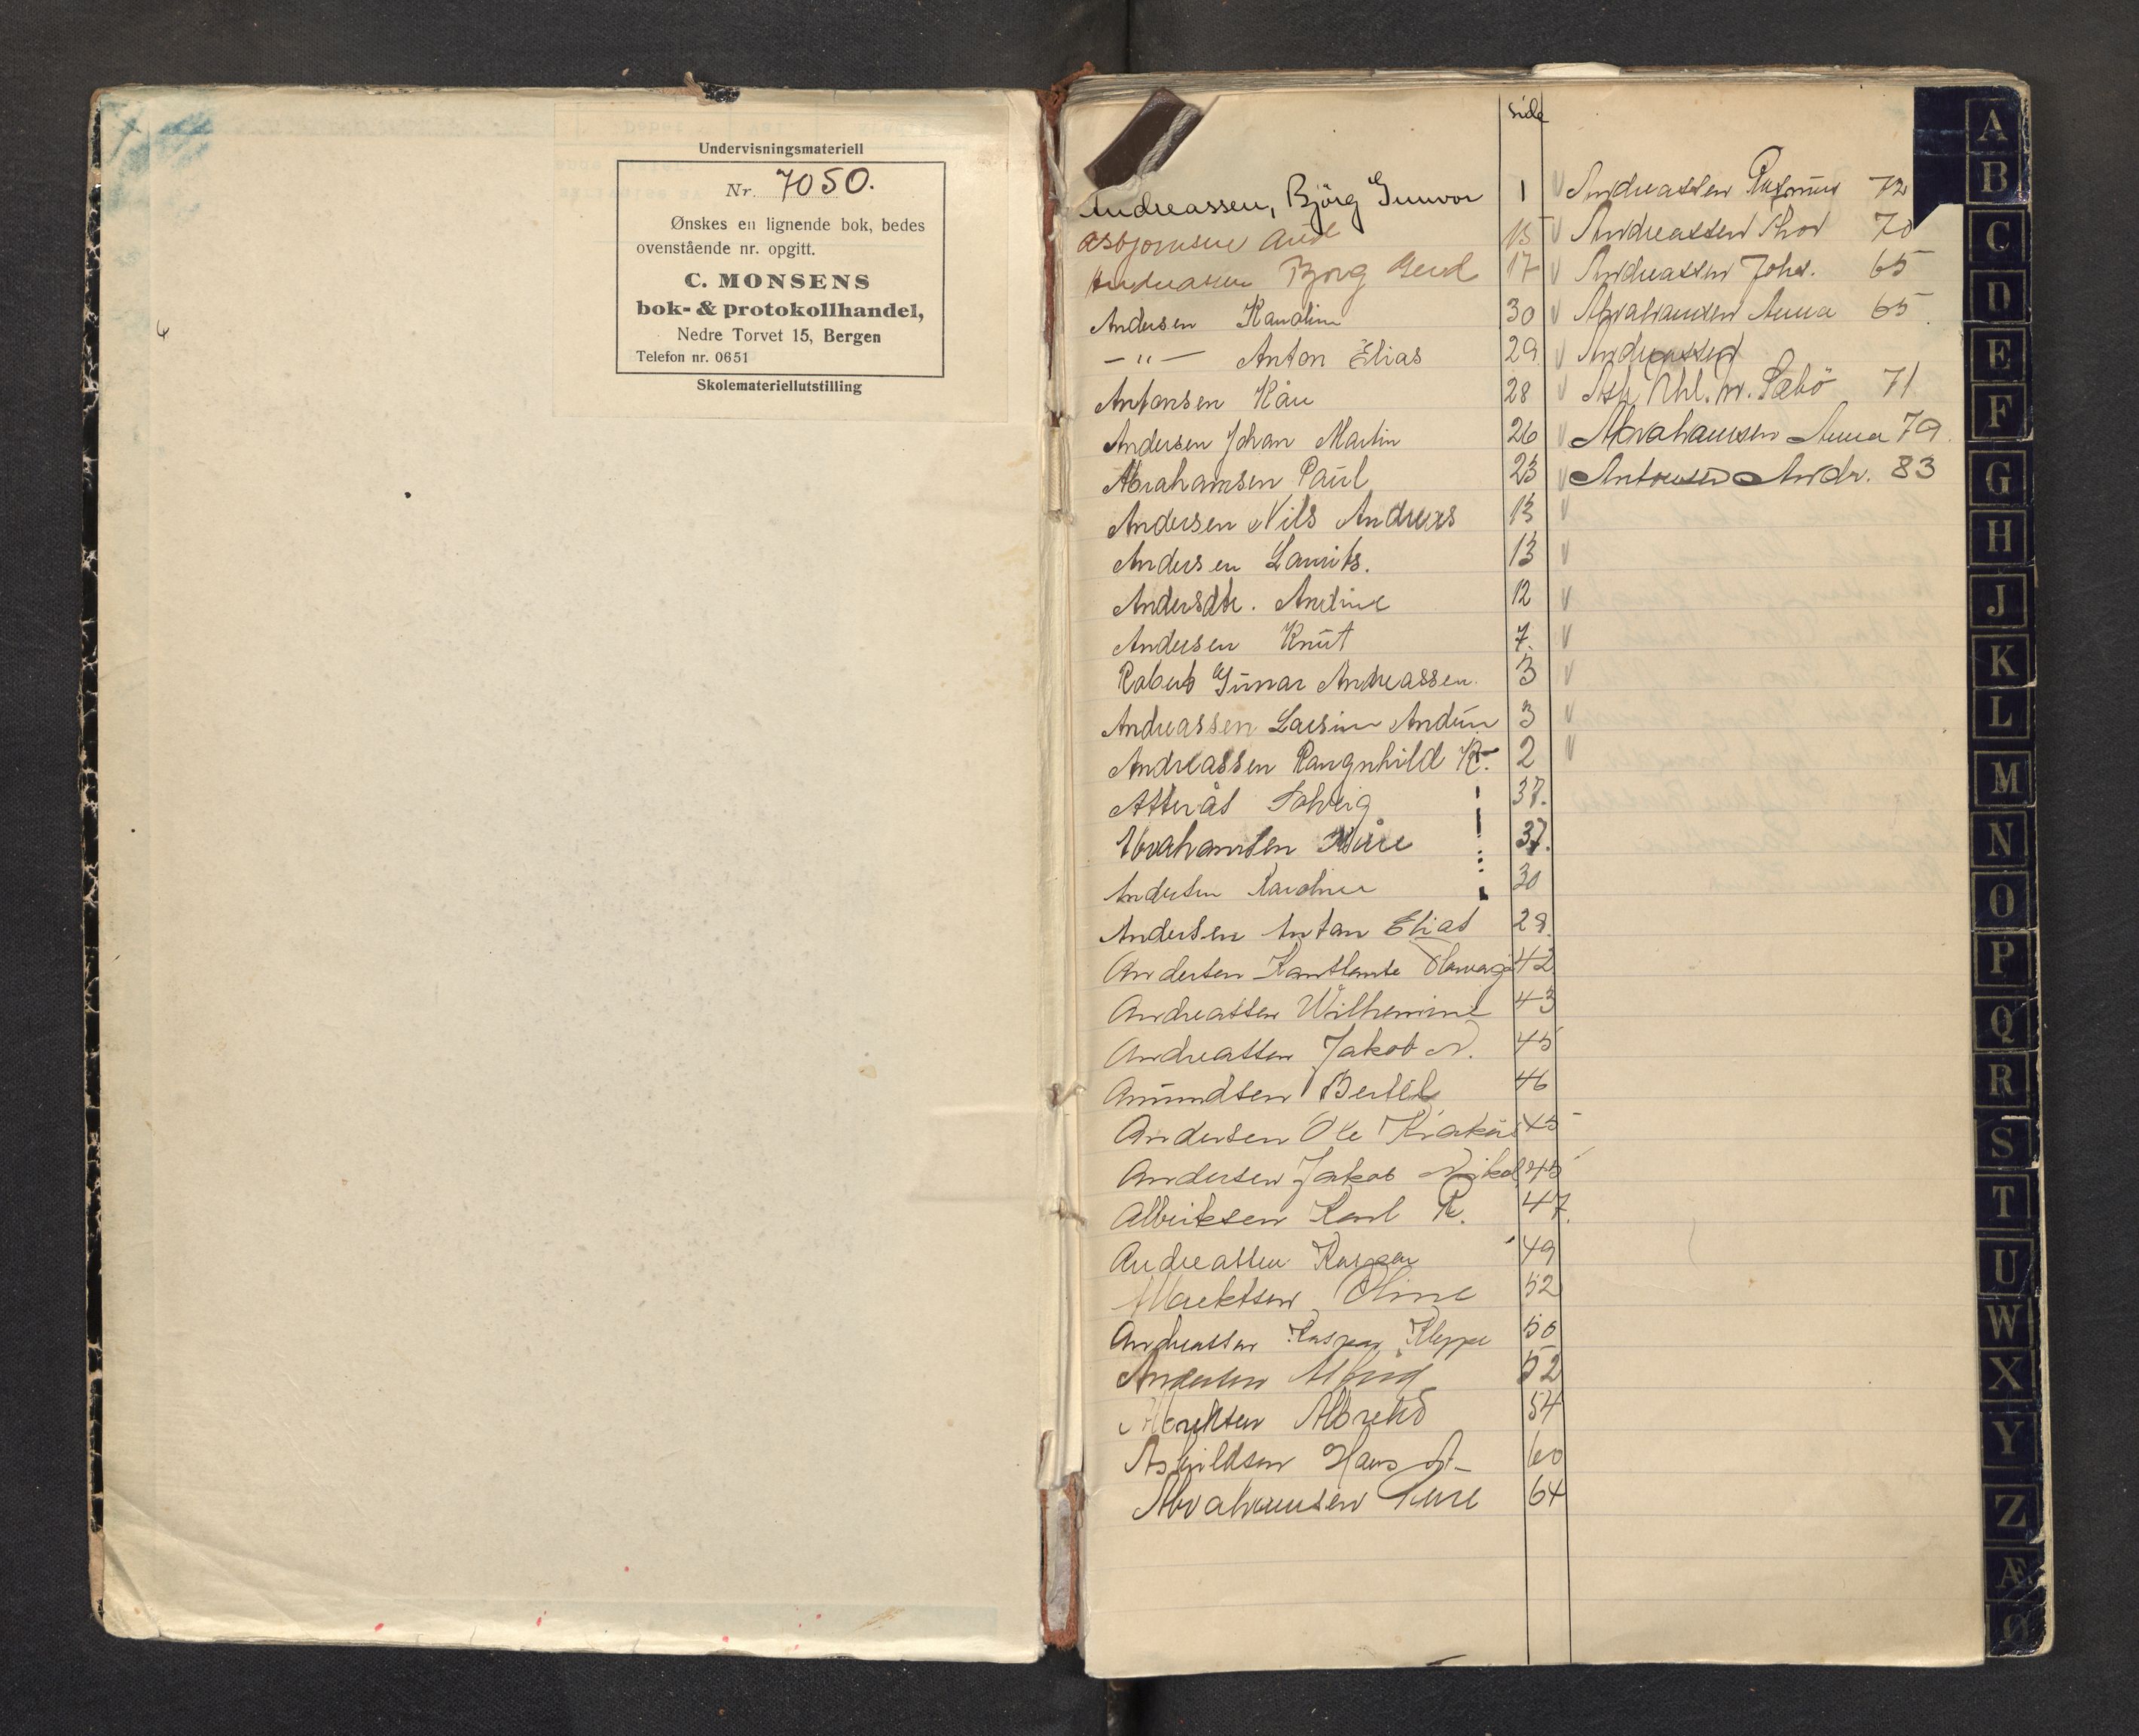 Undervisningsmateriell
Nr. 7050.
Ønskes en lignende bok, bedes
ovenstående nr. opgitt.
C. MONSENS
bok- & protokollhandel,
Nedre Torvet 15, Bergen
Telefon nr. 0651
Skolemateriellutstilling
side
Andreassen, Björg Gunvor 1
Asbjørnsen 15
Andreassen Borg Gerd 17
Andersen Karoline 30
— " — Anton Elias 29
Antonsen Kåre 28
Andersen Johan Martin 26
Abrahamsen Paul 23
Andersen Nils Andreas 13
Andersen Laurits. 13
Andersdtr. Andrine 12
Andersen Knut 7.
Robert Gunnar Andreassen. 3
Andreassen Larsine 3
Andreassen Rangnhild K. 2
Atterås Solveig 37.
Abrahamsen Kåre 37.
Andersen Karoline 30
Andersen Anton Elias 29.
Andersen 42
Andreassen Wilhemine 43
Andreassen Jakob N. 45
Amundsen Bertel 46
Andersen Ole 45
Andersen Jakob Nikol 45
Albriksen Karl R. 47.
Andreassen Kaspar 49
Oline 52
Andreassen Kaspar Kleppe 50
Andersen 52
Albrektsen Albrekt 54
Askildsen Hans A. 60
Abrahamsen 64
Andreassen Rasmus 72
Andreassen Thor 70
Andreassen Johs. 65
Abrahamsen Anna 65
Andreassen
Ask 71
Abrahamsen Anna 79.
Antonsen Andr. 83
A
B
C
D
E
F
G
H
J
K
L
M
N
O
P
Q
R
S
T
U
W
X
Y
Z
Æ
Ø